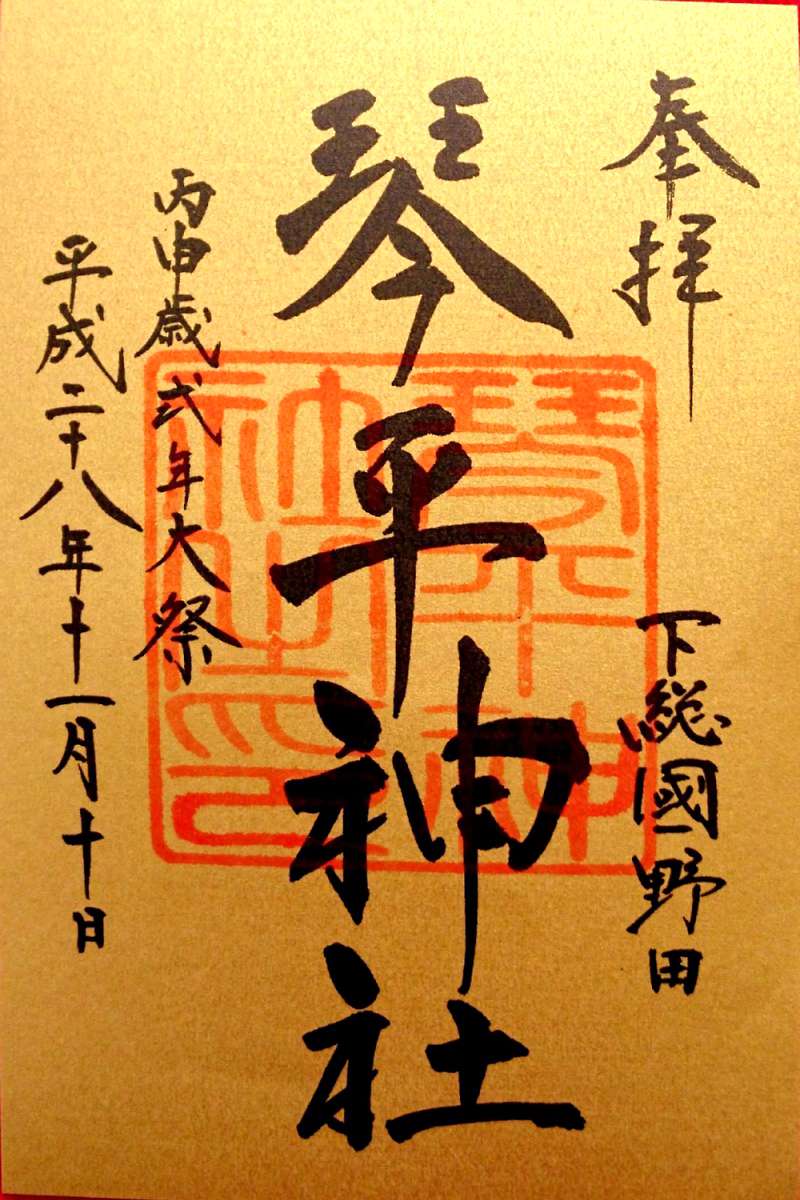 奉拝
下総國野田
琴平神社
琴平神社之印
丙申歳式年大祭
平成二十八年十一月十日